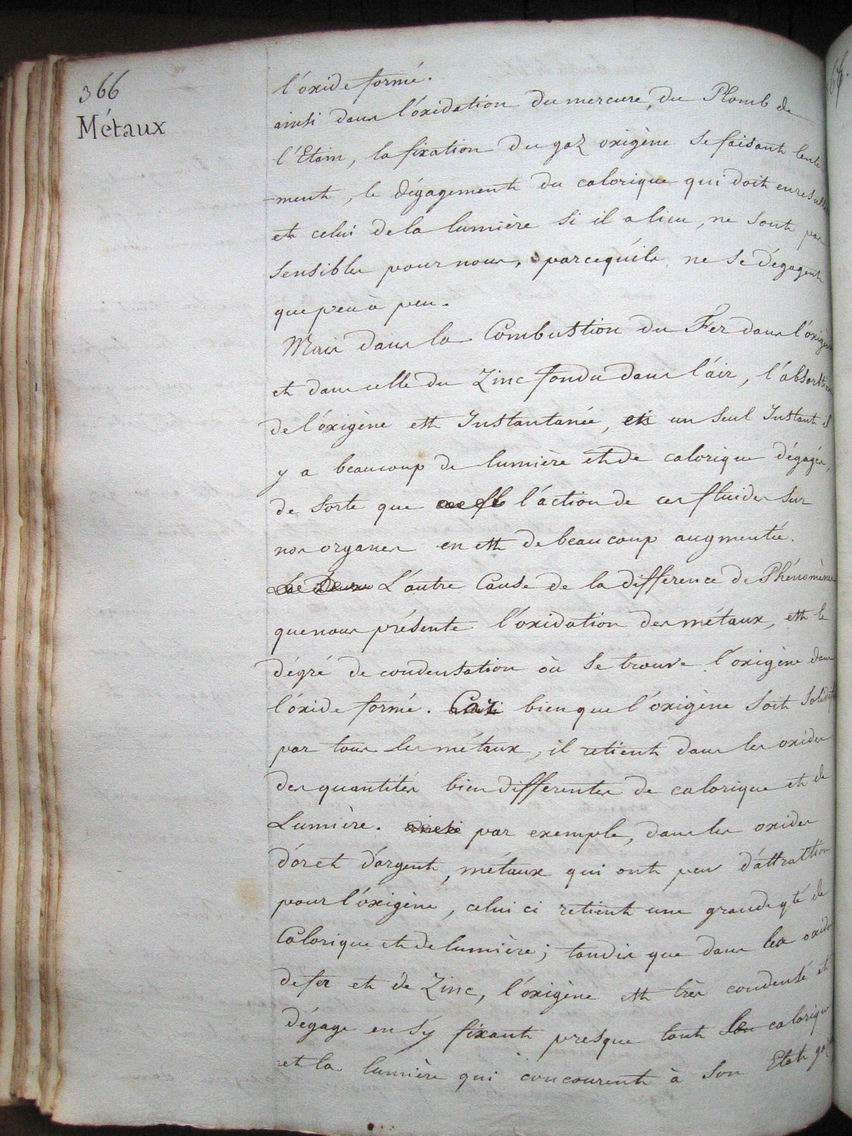 366
Métaux
l'oxide formé.
ainsi dans l'oxidation du mercure, du Plomb de
l'Etain, la fixation du gaz oxigène se faisant lente
ment, le dégagement du calorique qui doit en resulter
et celui de la lumière si il a lieu, ne sont pas
sensibles pour nous, parcequ'ils ne se dégagent
que peu à peu.
Mais dans la Combustion du Fer dans l'oxigène
et dans celle du Zinc fondu dans l'air, l'absorbtion
de l'oxigène est Instantanée, en un seul Instant il
y a beaucoup de lumière et de calorique dégagés,
de sorte que l'action de ces fluides sur
nos organes en est de beaucoup augmentée.
L'autre Cause de la difference de Phénomènes
que nous présente l'oxidation des métaux, est le
dégré de condensation où se trouve l'oxigène dans
l'oxide formé. Car bien que l'oxigène soit solidifié
par tous les métaux, il retient dans les oxides
des quantités bien differentes de calorique et de
Lumière. par exemple, dans les oxides
d'or et d'argent, métaux qui ont peu d'attraction
pour l'oxigène, celui ci retient une grande qté de
Calorique et de lumière; tandis que dans les oxides
de fer et de Zinc, l'oxigène est très condensé et
dégage en s'y fixant presque tout le calorique
et la lumière qui concourent à son Etat